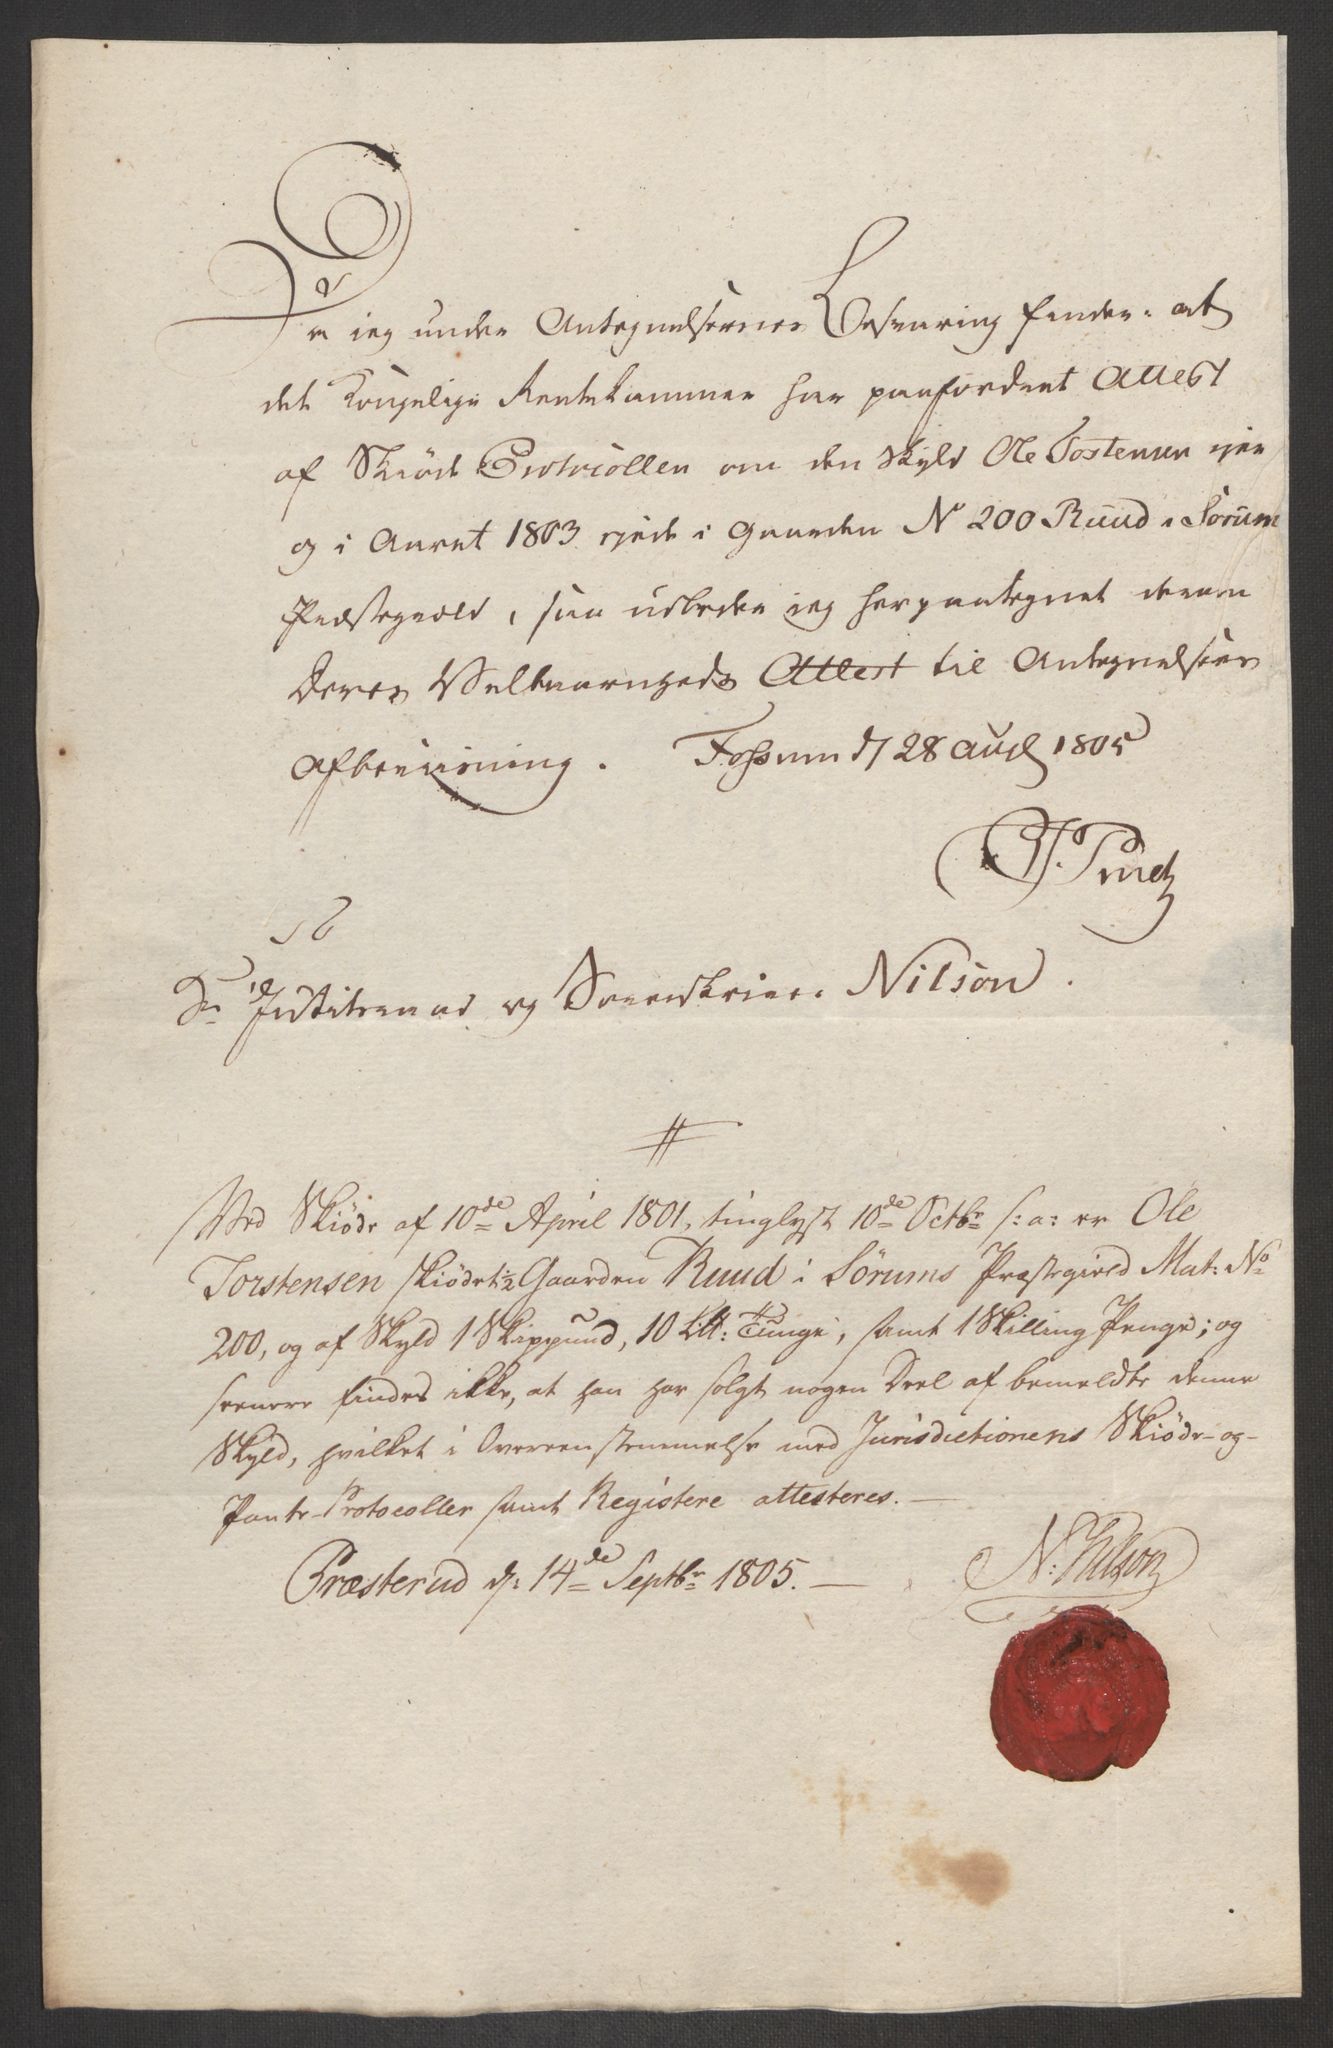 Da
jeg under Antegnelsernes Besvaring finder: at
det Kongelige Rentekammer har paafordret Attest
af Skiöde Protocollen om den Skyld Ole Tostensen ejer
og i Aaret 1803 ejede i Gaarden No 200 Ruud i Sörum
Præstegield, saa udbeder jeg herpaategnet derom
Deres Velbaarenheds Attest til Antegnelsens
Afbeviisning. Fossum d 28 Aug 1805
To
Sr Justitsraad og Sorenskriver Nilson.
Ved Skiöde af 10de April 1801, tinglyst 10de Octbr s: a: er Ole
Torstensen skiödet 1/2 Gaarden Ruud i Sörums Præstegield Mat: No
200, og af Skyld 1 Skippund, 10 Litt: Tunge, samt 1 Skilling Penge; og
seenere findes ikke, at han har solgt nogen Deel af bemeldte denne
Skyld, hvilket i Overeenstemmelse med Jurisdictionens Skiöde- og-
Pante-Protocoller samt Registere attesteres.—
Præsterud d: 14de Septbr 1805.— N: Nilson